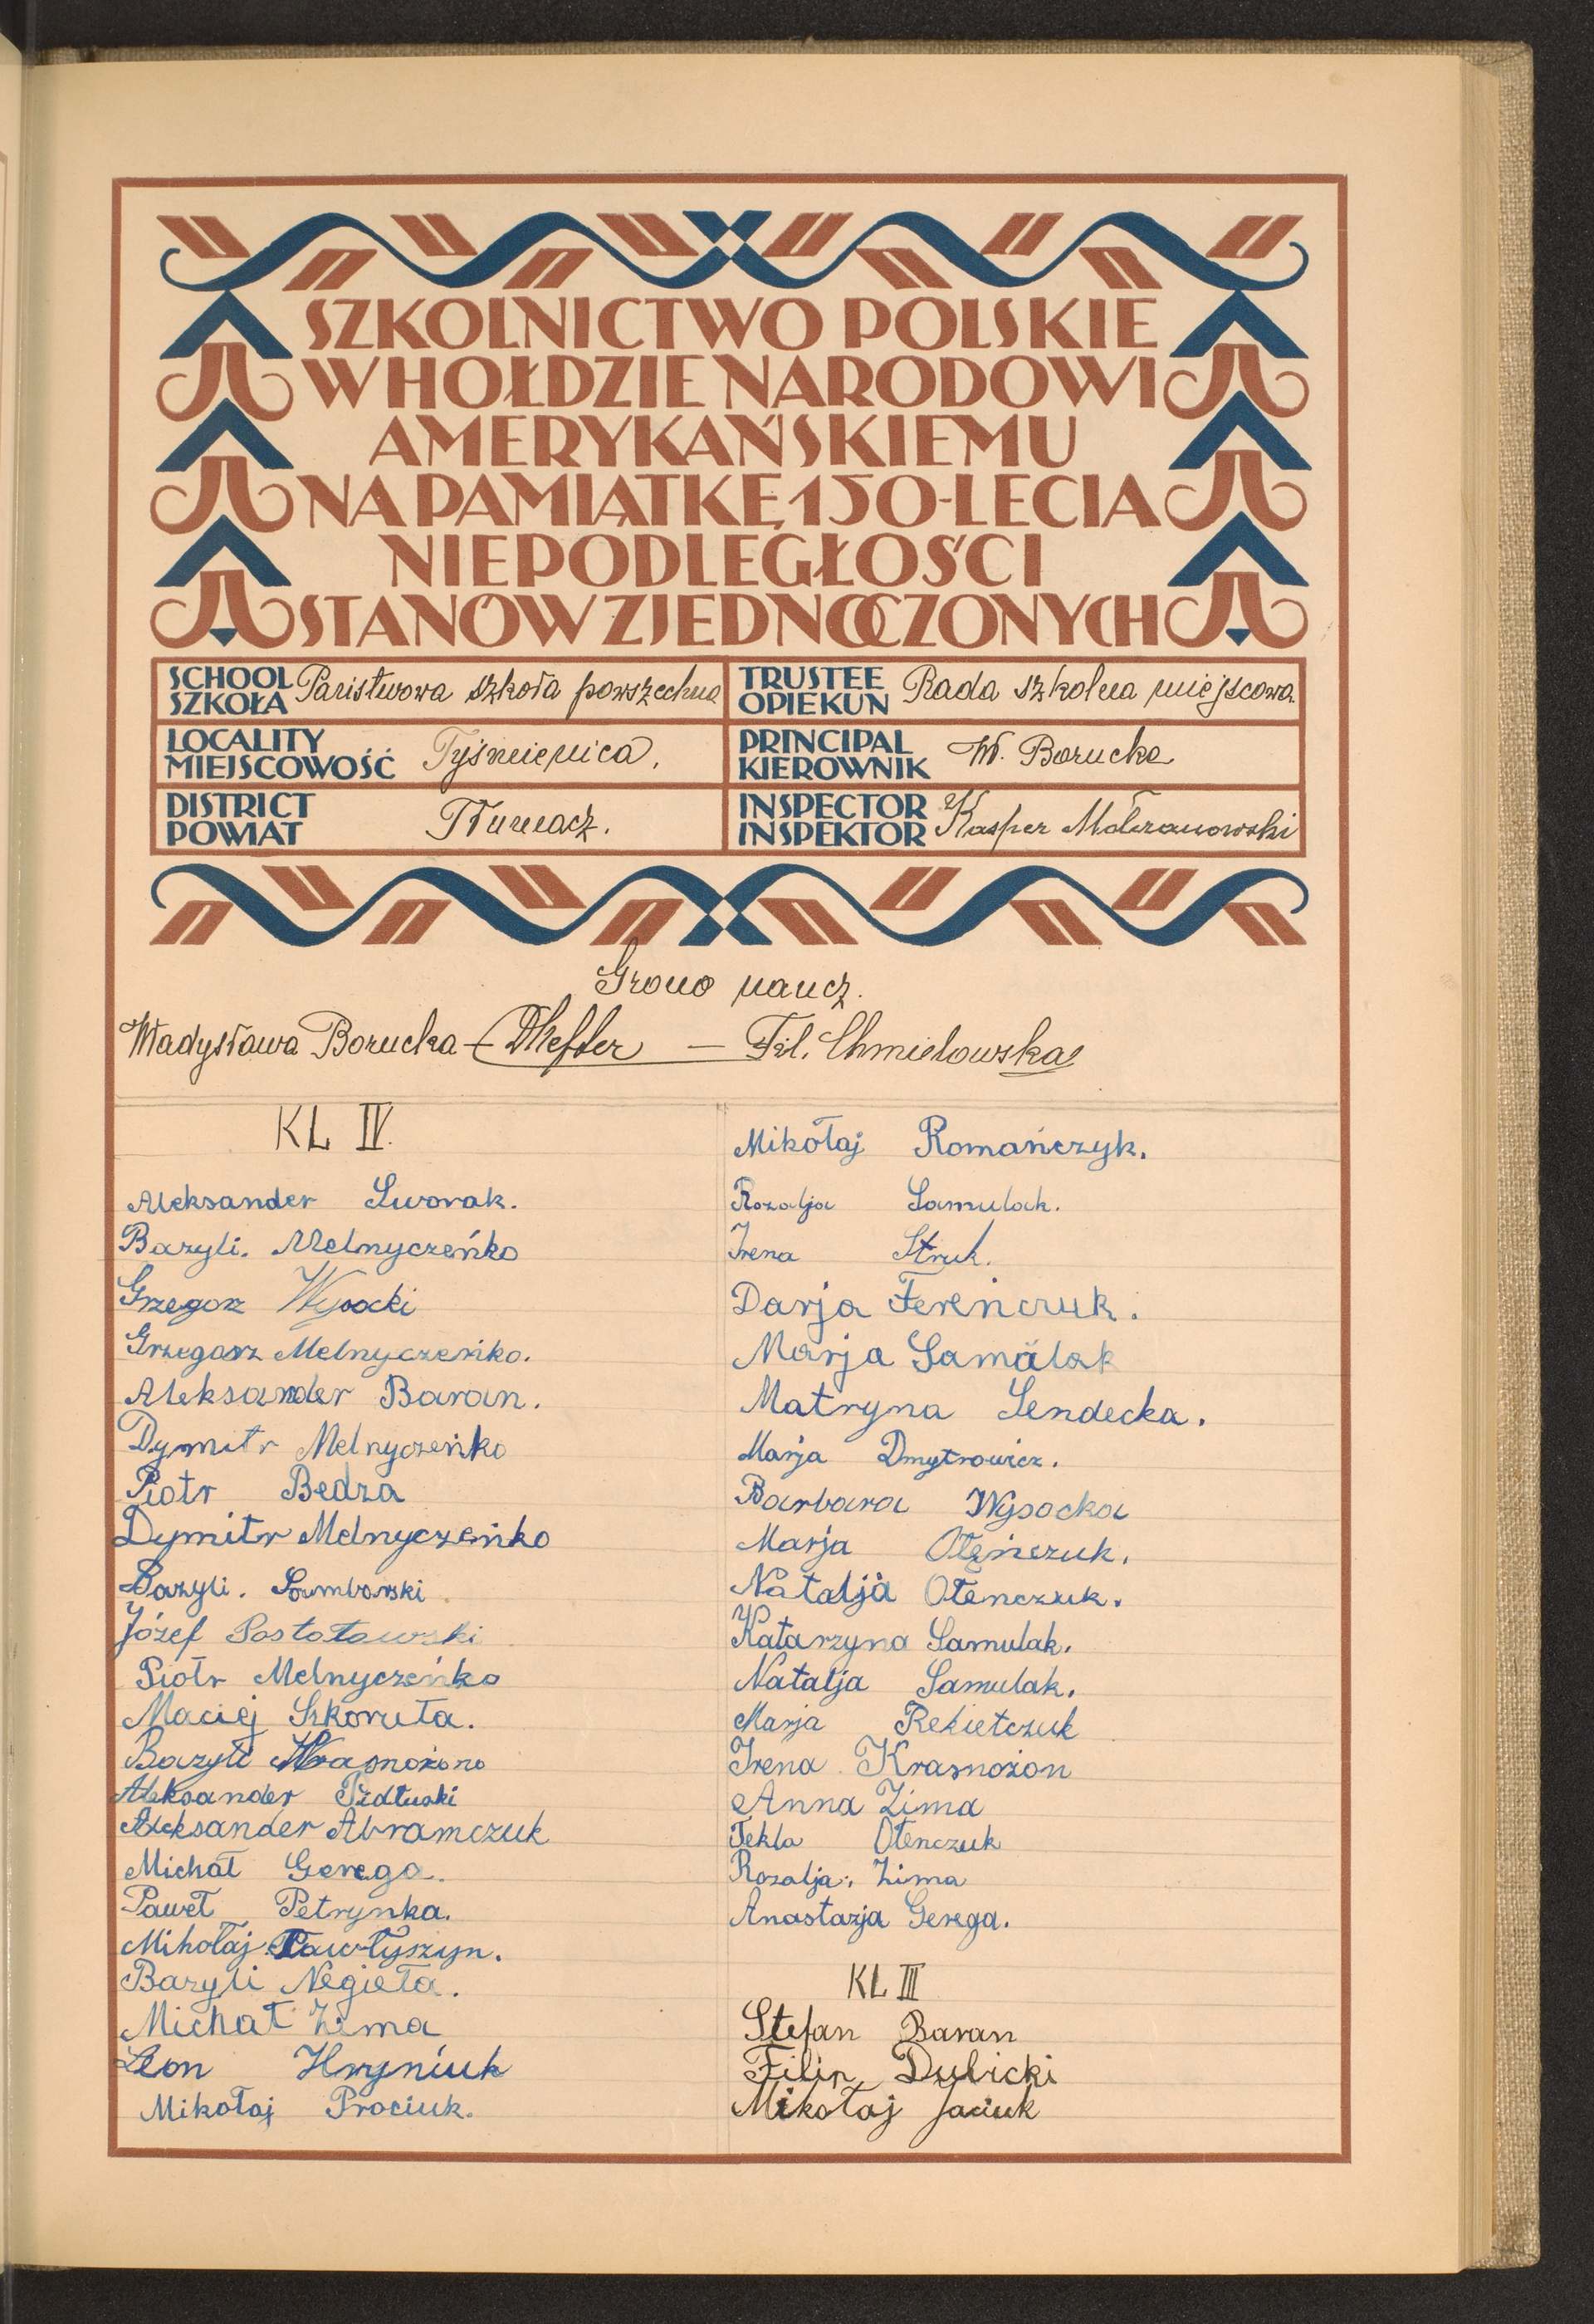 SZKOLNICTWO POLSKIE
W HOŁDZIE NARODOWI
AMERYKAŃSKIEMU
NA PAMIĄTKĘ 150-LECIA
NIEPODLEGŁOŚCI
STANÓW ZJEDNOCZONYCH
SCHOOL
SZKOŁA Państwowa szkoła powszechna
TRUSTEE
OPIEKUN Rada szkolna miejscowa.
LOCALITY
MIEJSCOWOŚĆ Tyśmienica.
PRINCIPAL
KIEROWNIK W. Borucka
DISTRICT
POWIAT Tłumacz.
INSPECTOR
INSPEKTOR Kasper Mołczanowski
Grono naucz.
Władysława Borucka — Fel. Chmielowska
KL IV.
Aleksander Sworak.
Bazyli. Melnyczeńko
Grzegorz Wysocki
Grzegorz Melnyczeńko.
Aleksander Baran.
Dymitr Melnyczeńko
Piotr Bedza
Dymitr Melnyczeńko
Bazyli. Samborski
Józef Postołowski
Piotr Melnyczeńko
Maciej Szkoruta.
Bazyli
Aleksander
Aleksander Abramczuk
Michał Gerega.
Paweł Petrynka.
Mikołaj Pawłyszyn.
Bazyli Negieła.
Michał Zima
Leon Hryniuk
Mikołaj Prociuk.
Mikołaj Romańczyk.
Rozalja Samulak.
Irena Struk.
Darja Fereńczuk.
Marja Samulak
Matryna Sendecka.
Marja Dmytrowicz.
Barbara Wysocka
Marja Oteńczuk.
Natalja Otenczuk.
Katarzyna Samulak.
Natalja Samulak.
Marja Rekietczuk
Irena Krasnożon
Anna Zima
Tekla Otenczuk
Rozalja. Zima
Anastazja Gerega.
KL III
Stefan Baran
Filip Dubicki
Mikołaj Jaciuk